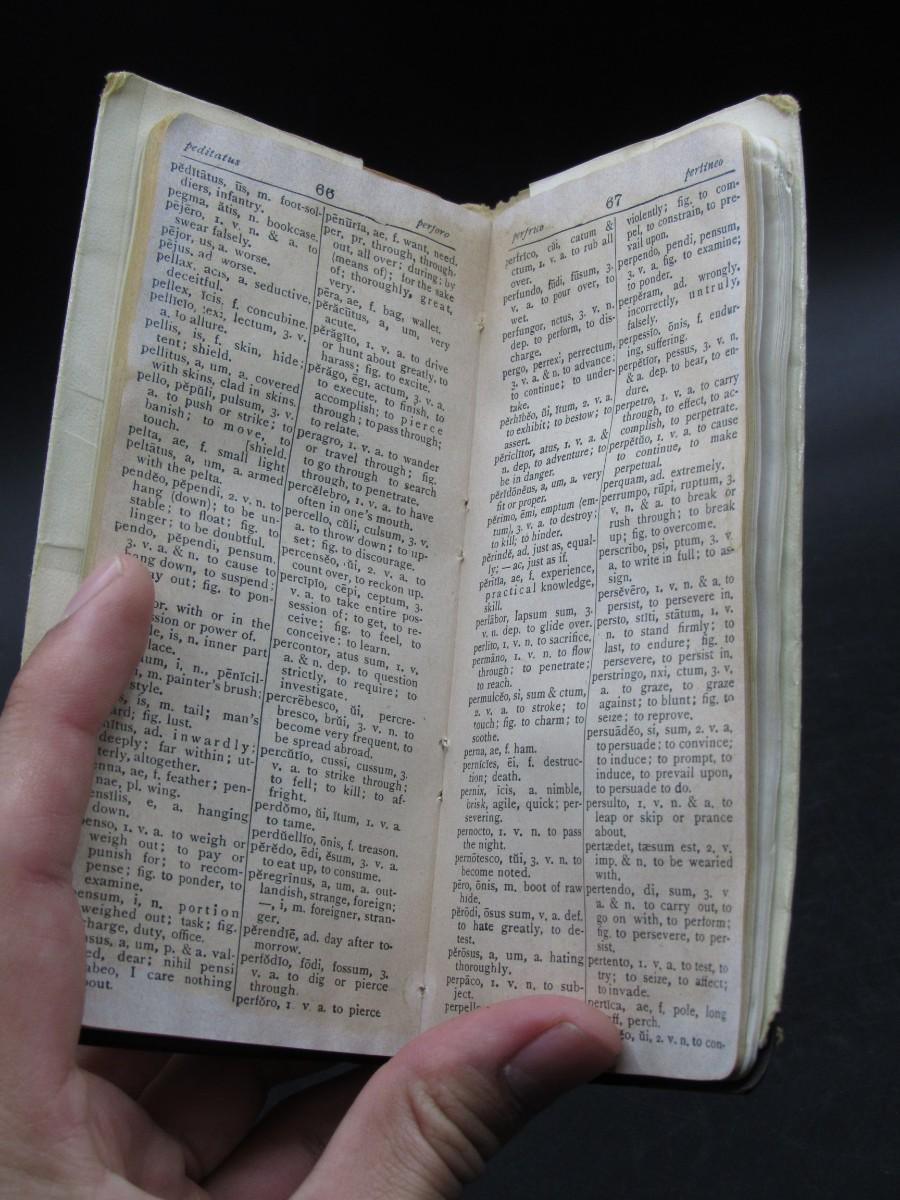 peditatus
66
perforo
pĕdĭtātus, ūs, m. foot-sol-
diers, infantry.
pegma, ătis, n. bookcase.
pējĕro, 1. v. n. & a. to
swear falsely.
pējor, us, a. worse.
pējus, ad. worse.
pellax, acis, a. seductive,
deceitful.
pellex, ĭcis, f. concubine.
pellĭcĭo, lexi, lectum, 3. v.
a. to allure.
pellis, is, f. skin, hide;
tent; shield.
pellītus, a, um, a. covered
with skins, clad in skins.
pello, pĕpŭli, pulsum, 3. v.
a. to push or strike; to
banish; to move, to
touch. [shield.
pelta, ae, f. small light
peltātus, a, um, a. armed
with the pelta.
pendĕo, pĕpendi, 2. v. n. to
hang (down); to be un-
stable; to float; fig. to
linger; to be doubtful.
pendo, pĕpendi, pensum,
3. v. a. & n. to cause to
hang down, to suspend;
pay out; fig. to pon-
with or in the
or power of.
is, n. inner part
i, n., pēnĭcil-
m. painter's brush;
style.
is, m. tail; man's
fig. lust.
ad. inwardly;
deeply; far within; ut-
terly, altogether.
ae, f. feather; pen-
nae, pl. wing.
e, a. hanging
down.
1. v. a. to weigh or
weigh out; to pay or
punish for; to recom-
pense; fig. to ponder, to
examine.
i, n. portion
weighed out; task; fig.
charge, duty, office.
a, um, p. & a. val-
dear; nihil pensi
I care nothing
pēnūrĭa, ae, f. want, need.
per, pr. through, through-
out, all over; during; by
(means of); for the sake
of; thoroughly, great,
very.
pēra, ae, f. bag, wallet.
pĕrăcūtus, a, um, very
acute.
pĕrăgĭto, 1. v. a. to drive
or hunt about greatly, to
harass; fig. to excite.
pĕrăgo, ēgi, actum, 3. v. a.
to execute, to finish, to
accomplish; to pierce
through; to pass through;
to relate.
peragro, 1. v. a. to wander
or travel through; fig.
to go through to search
through, to penetrate.
percĕlebro, 1. v. a. to have
often in one's mouth.
percello, cŭli, culsum, 3. v.
a. to throw down; to up-
set; fig. to discourage.
percensĕo, ŭi, 2. v. a. to
count over, to reckon up.
percĭpĭo, cēpi, ceptum, 3.
v. a. to take entire pos-
session of; to get, to re-
ceive; fig. to feel, to
conceive; to learn.
percontor, atus sum, 1. v.
a. & n. dep. to question
strictly, to require; to
investigate.
percrēbesco, ŭi, percre-
bresco, brŭi, 3. v. n. to
become very frequent, to
be spread abroad.
percŭtio, cussi, cussum, 3.
v. a. to strike through;
to fell; to kill; to af-
fright.
perdŏmo, ŭi, ĭtum, 1. v. a.
to tame.
perdŭellĭo, ōnis, f. treason.
pĕrĕdo, ēdi, ēsum, 3. v. a.
to eat up, to consume.
pĕregrīnus, a, um, a. out-
landish, strange, foreign;
—, i, m. foreigner, stran-
ger.
pĕrendĭē, ad. day after to-
morrow.
perfŏdĭo, fōdi, fossum, 3.
v. a. to dig or pierce
through.
perfŏro, 1 v. a. to pierce
perfrico
67
pertineo
perfrĭco, cŭi, catum &
ctum, 1. v. a. to rub all
over.
perfundo, fūdi, fūsum, 3.
v. a. to pour over, to
wet.
perfungor, nctus, 3. v. n.
dep. to perform, to dis-
charge.
pergo, perrexi, perrectum,
3. v. a. & n. to advance;
to continue; to under-
take.
pĕrhĭbĕo, ŭi, ĭtum, 2. v. a.
to exhibit; to bestow; to
assert.
pĕrīclĭtor, atus, 1. v. a. &
n. dep. to adventure; to
be in danger.
pĕrĭdōnĕus, a, um, a. very
fit or proper.
pĕrĭmo, ēmi, emptum (em-
tum), 3. v. a. to destroy;
to kill; to hinder.
pĕrindē, ad. just as, equal-
ly; — ac, just as if.
pĕrītĭa, ae, f. experience,
practical knowledge,
skill.
perlābor, lapsum sum, 3.
v. n. dep. to glide over.
perlĭto, 1. v. n. to sacrifice.
permāno, 1. v. n. to flow
through; to penetrate;
to reach.
permulcĕo, si, sum & ctum,
2. v. a. to stroke; to
touch; fig. to charm; to
soothe.
perna, ae, f. ham.
pernĭcĭes, ēi, f. destruc-
tion; death.
pernix, ĭcis, a. nimble,
brisk, agile, quick; per-
severing.
pernocto, 1. v. n. to pass
the night.
pernōtesco, tŭi, 3. v. n. to
become noted.
pēro, ōnis, m. boot of raw
hide.
pĕrōdi, ōsus sum, v. a. def.
to hate greatly, to de-
test.
pĕrōsus, a, um, a. hating
thoroughly.
perpāco, 1. v. n. to sub-
ject.
violently; fig. to com-
pel, to constrain, to pre-
vail upon.
perpendo, pendi, pensum,
3. v. a. fig. to examine;
to ponder.
perpĕram, ad. wrongly,
incorrectly, untruly,
falsely.
perpessĭo, ōnis, f. endur-
ing, suffering.
perpĕtĭor, pessus, 3. v. n.
& a. dep. to bear, to en-
dure.
perpetro, 1. v. a. to carry
through, to effect, to ac-
complish, to perpetrate.
perpĕtŭo, 1. v. a. to cause
to continue, to make
perpetual.
perquam, ad. extremely.
perrumpo, rūpi, ruptum, 3.
v. n. & a. to break or
rush through; to break
up; fig. to overcome.
perscribo, psi, ptum, 3. v.
a. to write in full; to as-
sign.
persĕvēro, 1. v. n. & a. to
persist, to persevere in,
persto, stĭti, stātum, 1. v.
n. to stand firmly; to
last, to endure; fig. to
persevere, to persist in,
perstringo, nxi, ctum, 3. v.
a. to graze, to graze
against; to blunt; fig. to
seize; to reprove.
persuādĕo, si, sum, 2. v. a.
to persuade; to convince;
to induce; to prompt, to
induce, to prevail upon,
to persuade to do.
persulto, 1. v. n. & a. to
leap or skip or prance
about.
pertædet, tæsum est, 2. v.
imp. & n. to be wearied
with.
pertendo, di, sum, 3. v
a. & n. to carry out, to
go on with, to perform;
fig. to persevere, to per-
sist.
pertento, 1. v. a. to test, to
try; to seize, to affect;
to invade.
pertica, ae, f. pole, long
perch.
ŭi, 2. v. n. to con-